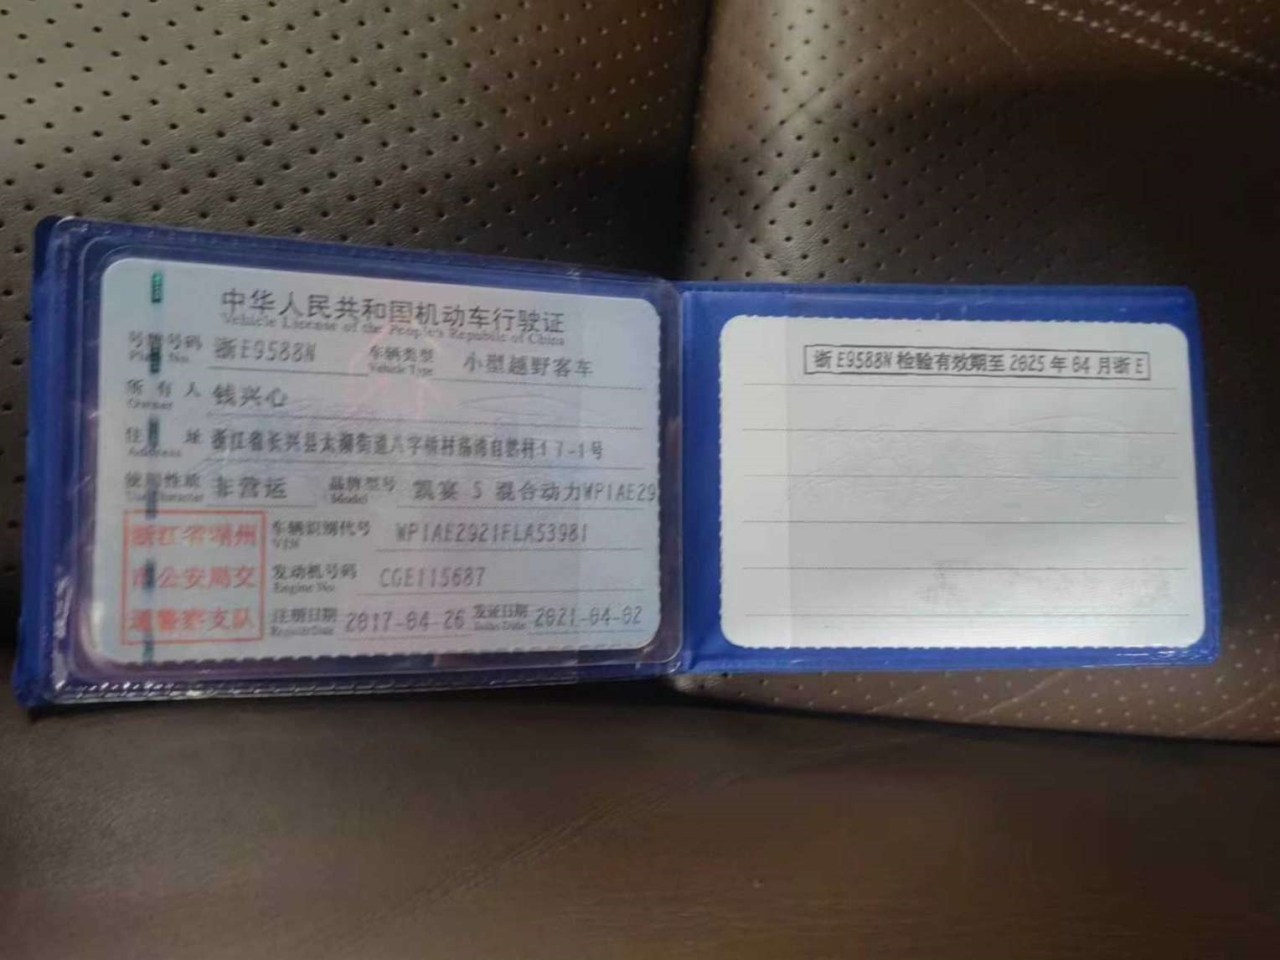 中华人民共和国机动车行驶证
Vehicle License of the People's Republic of China
号牌号码 浙E9588N 车辆类型 小型越野客车
Plate No. Vehicle Type
所有人 钱兴心
Owner
住址 浙江省长兴县太湖街道八字桥村 自然村17-1号
Address
使用性质 非营运 品牌型号 凯宴 S 混合动力WP1AE29
Use Character Model
浙江省湖州
市公安局交
通警察支队
车辆识别代号 WP1AE2921FLA53981
VIN
发动机号码 CGE115687
Engine No.
注册日期 2017-04-26 发证日期 2021-04-02
Register Date Issue Date
浙E9588N 检验有效期至 2025 年 04 月浙 E